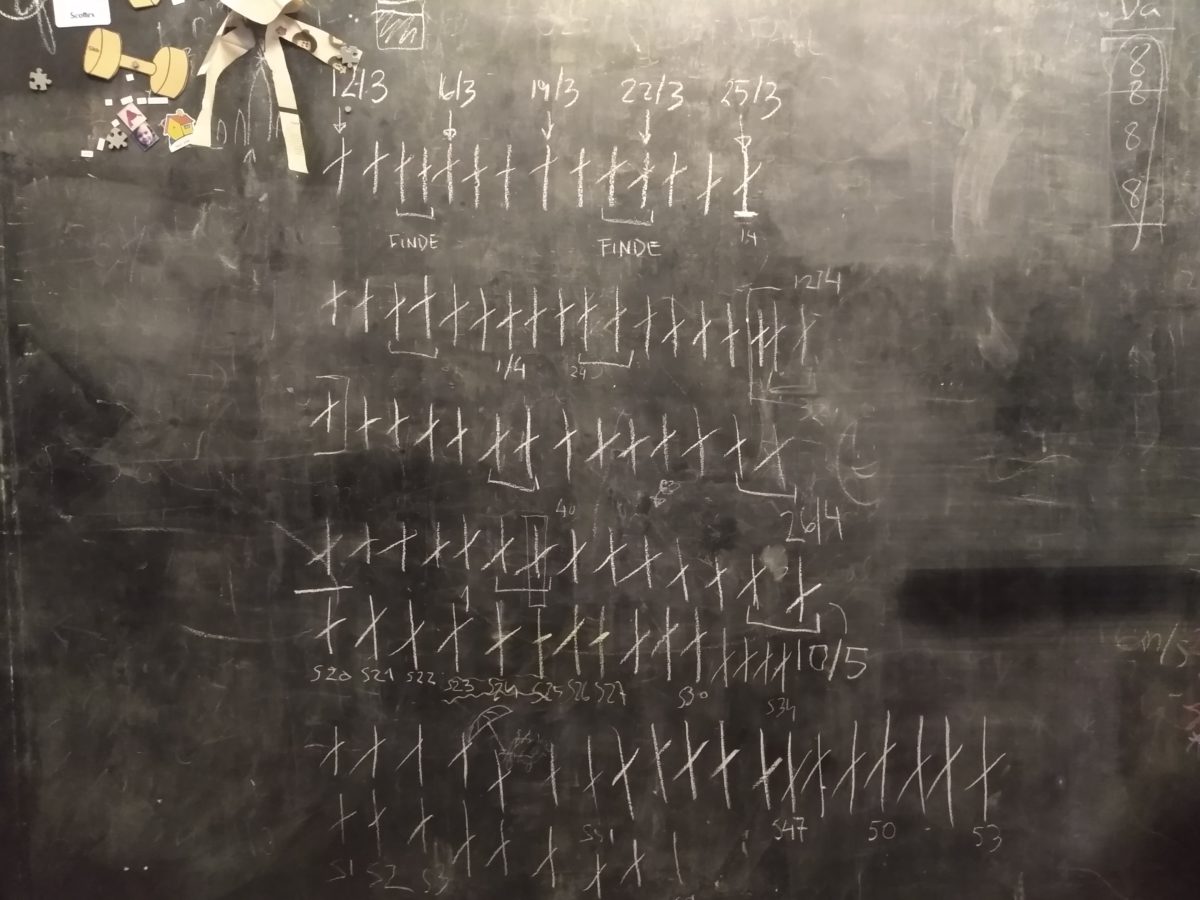 Scottex
Da
8
8
8
8
12/3 16/3 19/3 22/3 25/3
FINDE FINDE 14
12/4
1/4 24
40 26/4
10/5
S20 S21 S22 S23 S24 S25 S26 S27 S30 S34
cm/s
S41 S47 50 53
S1 S2 S3